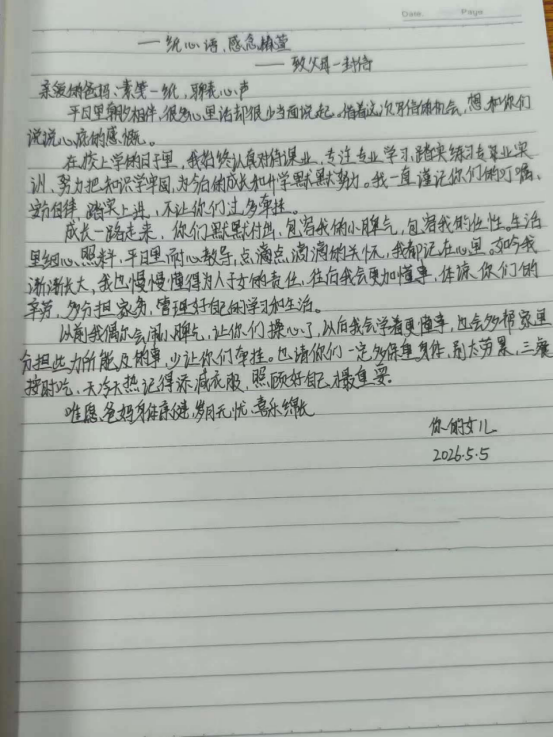 Date. Page
一纸心语,感念椿萱
——致父母一封信
亲爱的爸妈:素笺一纸,聊表心声
平日里朝夕相伴,很多心里话却很少当面说起。借着这次写信的机会,想和你们
说说心底的感慨。
在校上学的日子里,我始终认真对待课业、专注专业学习,踏实练习专业实
训,努力把知识学牢固,为今后的成长和升学默默努力。我一直谨记你们的叮嘱,
安守自律,踏实上进,不让你们过多牵挂。
成长一路走来,你们默默付出,包容我的小脾气,包容我的任性。生活
里细心照料,平日里耐心教导,点点滴滴的关怀,我都记在心里。如今我
渐渐长大,我也慢慢懂得为人子女的责任,往后我会更加懂事,体谅你们的
辛劳,多分担家务,管理好自己的学习和生活。
以前我偶尔会闹小脾气,让你们操心了,以后我会学着更懂事,也会多帮家里
分担些力所能及的事,少让你们牵挂。也请你们一定多保重身体,别太劳累,三餐
按时吃,天冷天热记得添减衣服,照顾好自己才最重要。
唯愿爸妈身体康健,岁月无忧,喜乐绵长
你们的女儿
2026.5.5